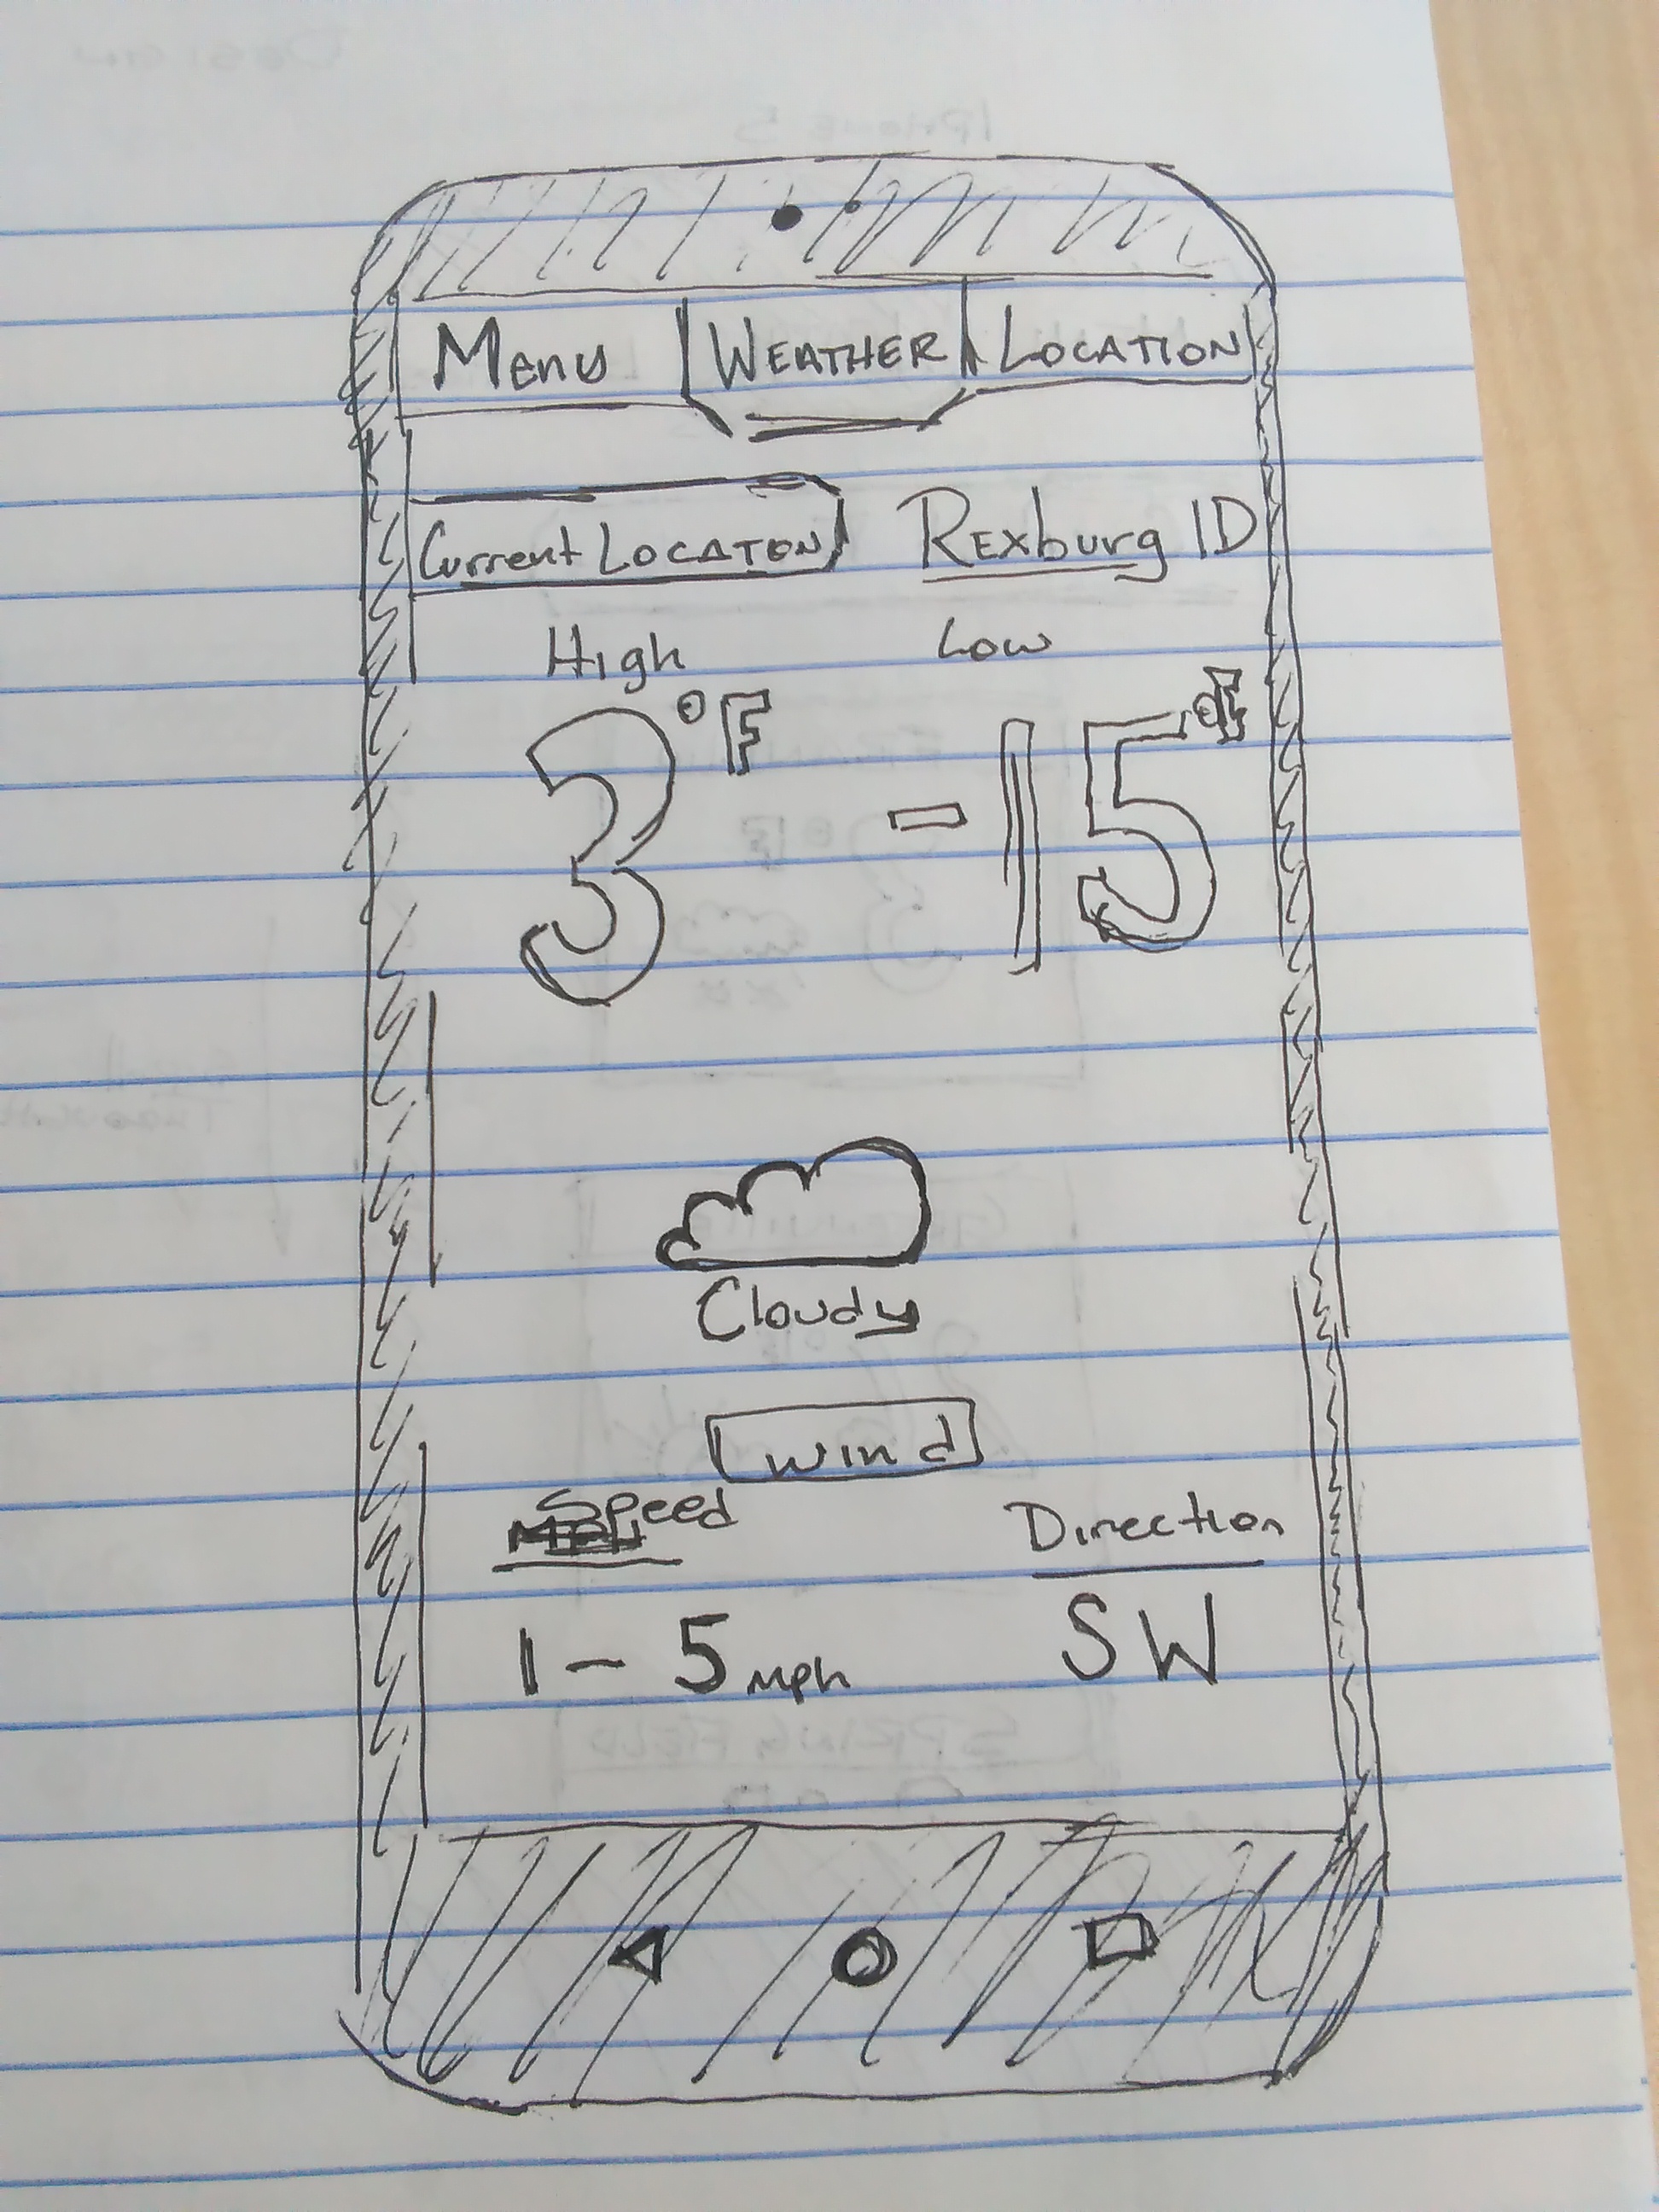 Menu WEATHER LOCATION
Current LOCATON Rexburg ID
High Low
3°F -15°F
Cloudy
wind
Speed Direction
1 - 5 mph SW